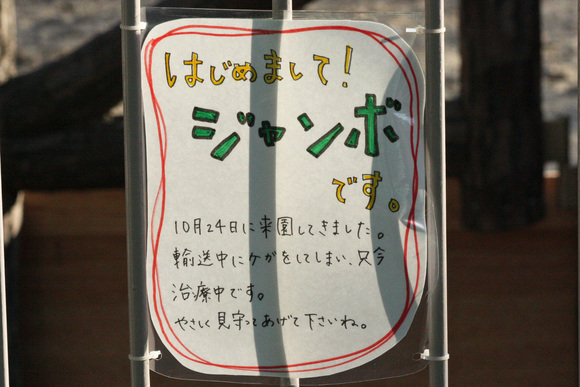 はじめまして!
ジャンボ
です。
10月24日に来園してきました。
輸送中にケガをしてしまい、只今
治療中です。
やさしく見守ってあげて下さいね。